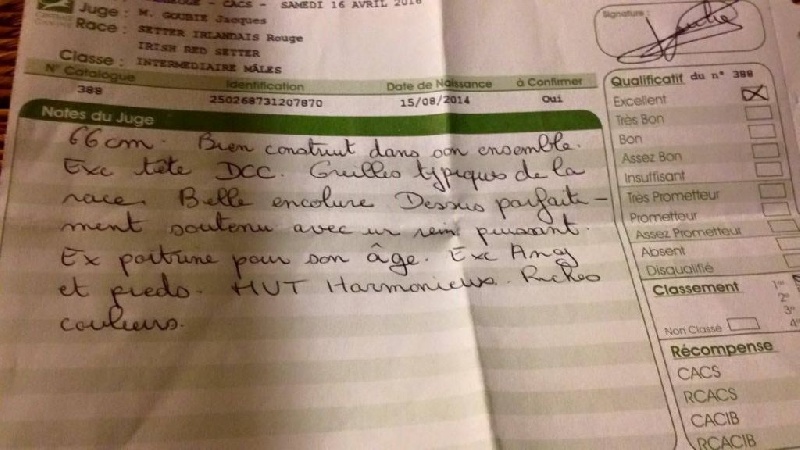 - CACS - SAMEDI 16 AVRIL 2016
Juge : M. GOUBIE Jacques
Race : SETTER IRLANDAIS Rouge
IRISH RED SETTER
Classe : INTERMEDIAIRE MÂLES
N° Catalogue Identification Date de Naissance à Confirmer
388 250268731207870 15/08/2014 Oui
Notes du Juge
66cm. Bien construit dans son ensemble.
Exc tête DCC. Oreilles typiques de la
race. Belle encolure Dessus parfaite-
ment soutenu avec un rein puissant.
Ex poitrine pour son âge. Exc Ang
et pieds. MVT Harmonieux. Riches
couleurs.
Signature :
Qualificatif du n° 388
Excellent
Très Bon
Bon
Assez Bon
Insuffisant
Très Prometteur
Prometteur
Assez Prometteur
Absent
Disqualifié
Classement 1er
2e
3e
Non Classé 4e
Récompense
CACS
RCACS
CACIB
RCACIB